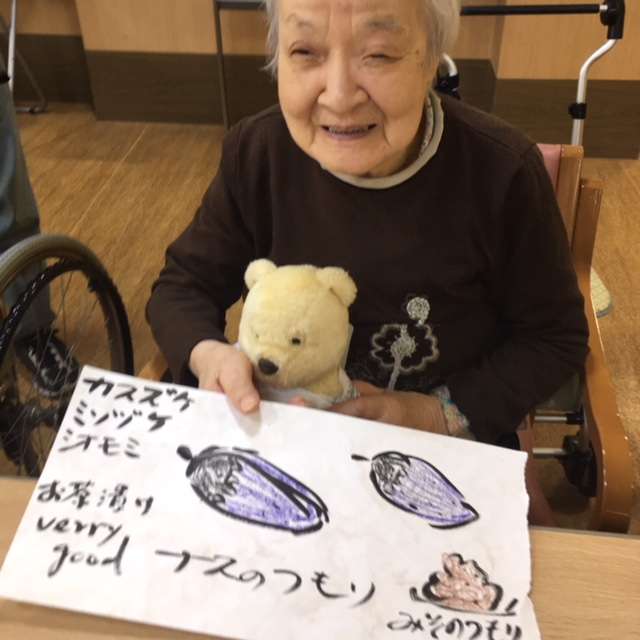 カスズケ
ミソヅケ
シオモミ
お茶漬け
verry
good
ナスのつもり
みそのつもり